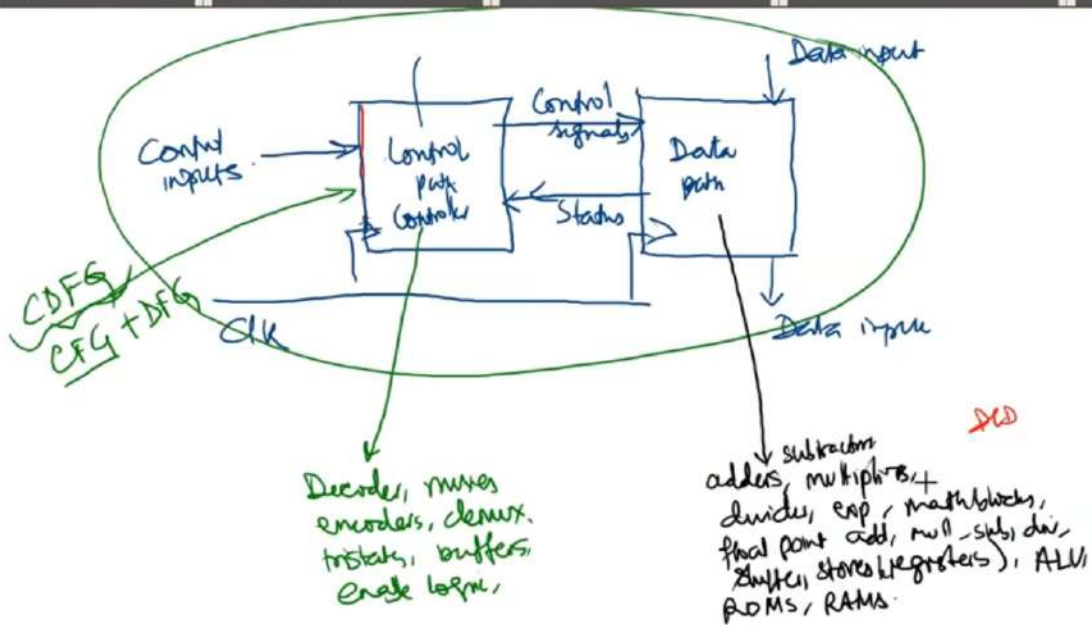 Data input
Control
signals
Control
inputs
Control
path
Controller
Data
path
Status
CDFG
CFG + DFG
Clk
Data input
DCD
Decoder, muxes
encoders, demux.
tristate, buffers,
enable logic,
subtractors
adders, multipliers, +
divider, exp, mathblocks,
float point add, mull, sub, div,
shifter, stores (registers), ALU,
ROMS, RAMS.